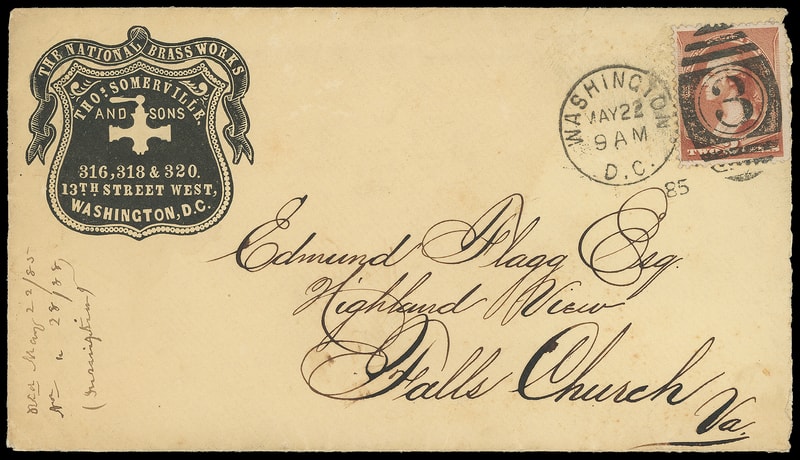 THE NATIONAL BRASS WORKS
THOS. SOMERVILLE.
AND SONS
316, 318 & 320.
13TH STREET WEST,
WASHINGTON, D.C.
WASHINGTON
MAY 22
9 AM
D.C.
85
3
TWO
Edmund Flagg Esq.
Highland View
Falls Church
Va.
Recd May 22/85
" 28/88